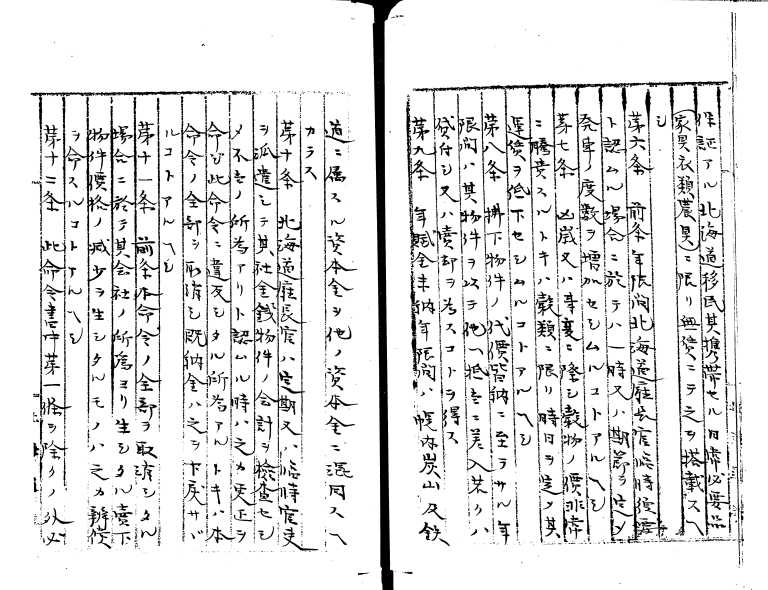 保証アル北海道移民其携帯セル日常必要品
家具衣類農具ニ限リ無賃ニテ之ヲ搭載スヘ
シ
第六条 前条年限間北海道庁長官臨時須要
ト認ムル場合ニ於テハ一時又ハ期節ヲ定メ
発車ノ度数ヲ増加セシムルコトアルヘシ
第七条 凶歳又ハ事変ニ際シ穀物ノ価非常
ニ騰貴スルトキハ穀類ニ限リ時日ヲ定メ其
運賃ヲ低下セシムルコトアルヘシ
第八条 払下物件ノ代価皆納ニ至ラサル年
限間ハ其物件ヲ以テ他ヘ抵当ニ差入若クハ
貸付シ又ハ売却ヲ為スコトヲ得ス
第九条 年賦金未納年限間ハ幌内炭山及鉄
道ニ属スル資本金ヲ他ノ資本金ニ混同スヘ
カラス
第十条 北海道庁長官ハ定期又ハ臨時官吏
ヲ派遣シテ其社金銭物件ノ会計ヲ検査セシ
メ不当ノ所為アリト認ムル時ハ之カ更正ヲ
命シ此命令ニ違反シタル所為アルトキハ本
命令ノ全部ヲ取消シ既納金ハ之ヲ下戻サヾ
ルコトアルヘシ
第十一条 前条本命令ノ全部ヲ取消シタル
場合ニ於テ其会社ノ所為ヨリ生シタル売下
物件価格ノ減少ヲ生シタルモノハ之カ弁償
ヲ命スルコトアルヘシ
第十二条 此命令書中第一条ヲ除クノ外必